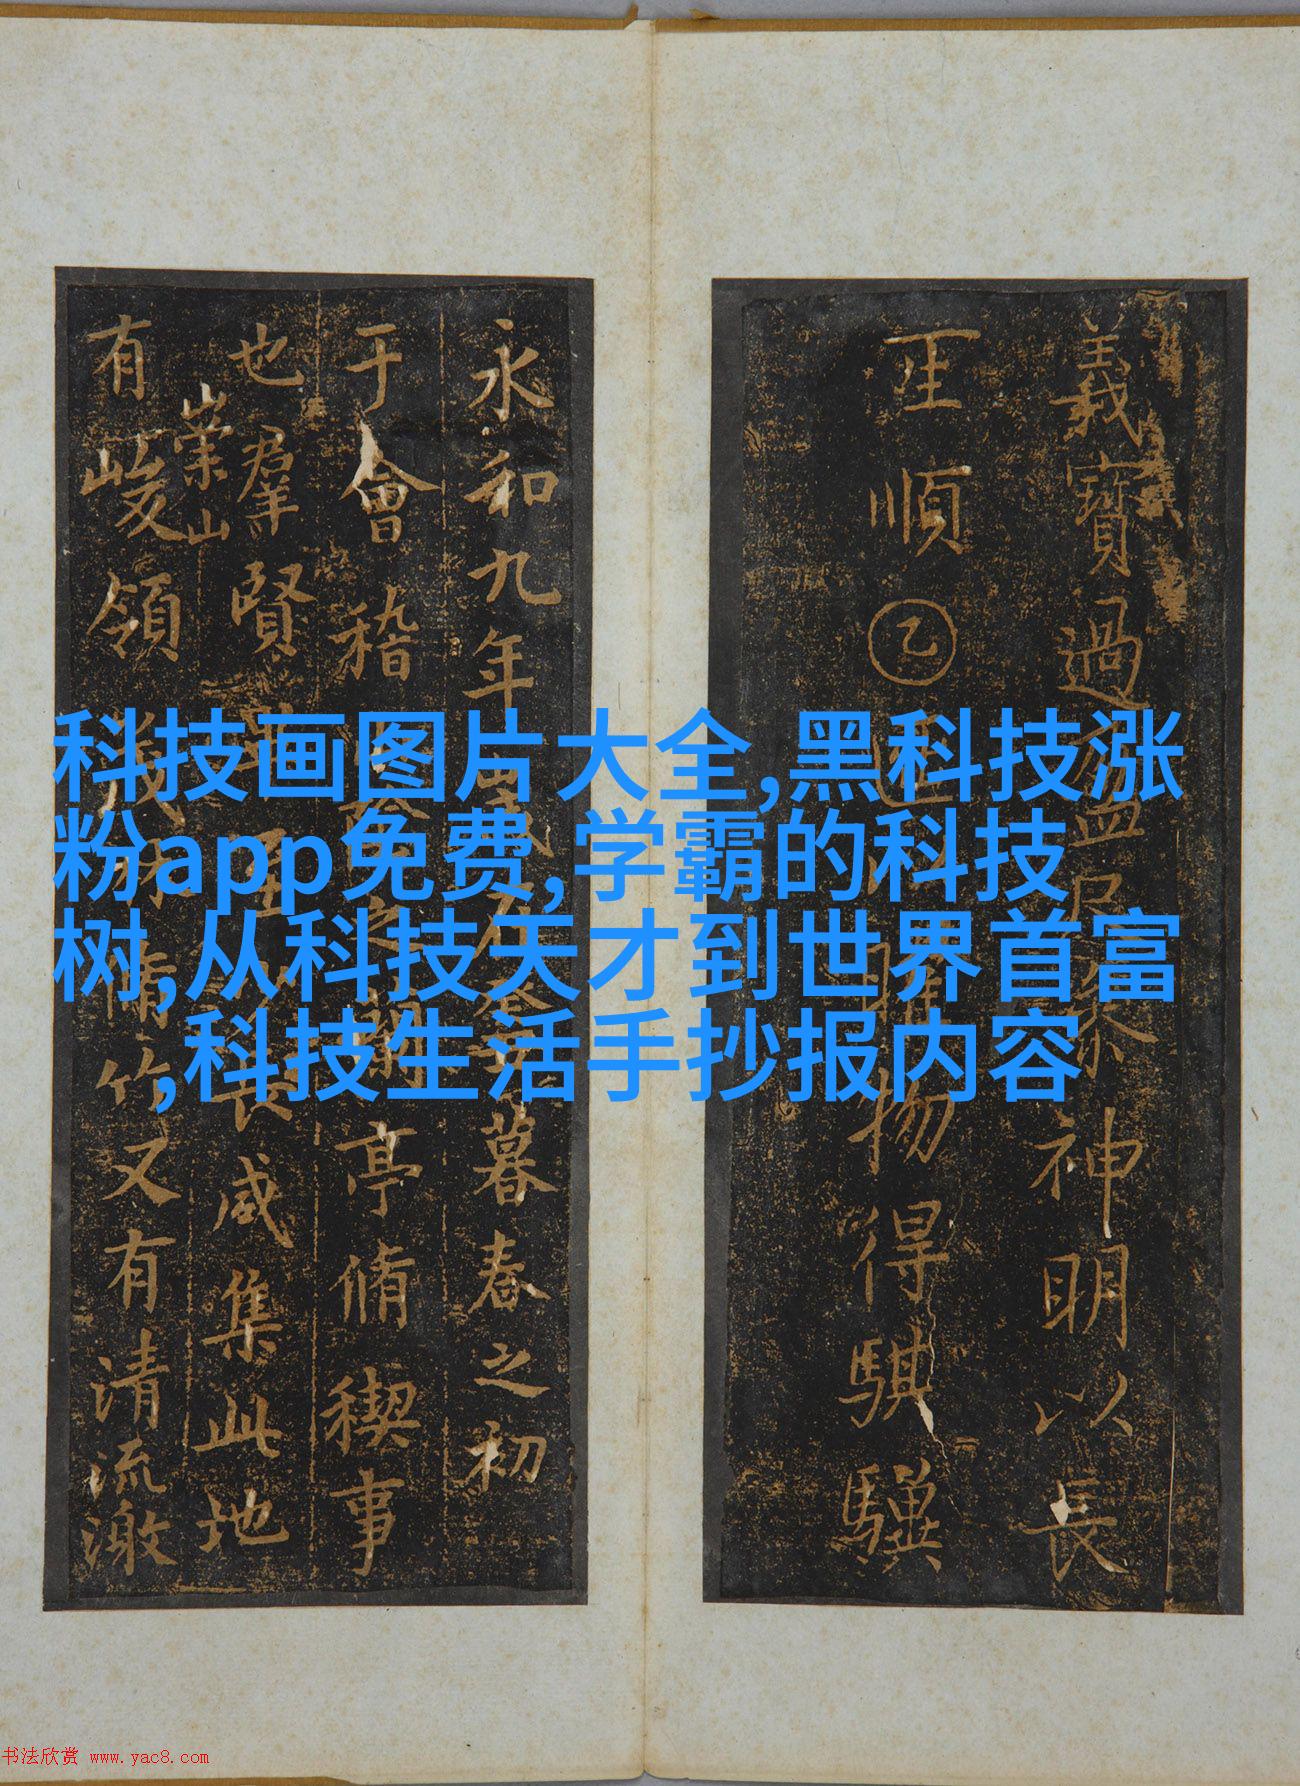 科技画图片大全,黑科技涨
粉app免费,学霸的科技
树,从科技天才到世界首富
,科技生活手抄报内容
義寶過
神明以長
王順㊁
物得騏驥
永和九年
暮春之初
于會稽
亭脩禊事
也羣賢
咸集此地
崇山
有峻領
脩竹又有清流激
书法欣赏 www.yac8.com